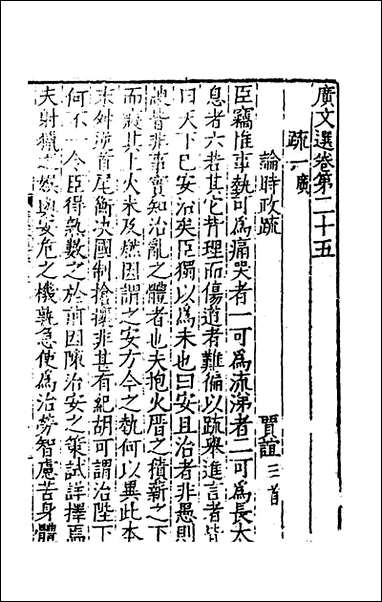 廣文選卷第二十五
疏一廣
論時政疏 賈誼三首
臣竊惟事執可為痛哭者一可為流涕者二可為長太
息者六若其它背理而傷道者難偏以疏舉進言者皆
曰天下已安治矣臣獨以為未也曰安且治者非愚則
諛皆非事實知治亂之體者也夫抱火厝之積薪之下
而寢其上火未及燃因謂之安方今之執何以異此本
末舛逆首尾衡決國制搶攘非甚有紀胡可謂治陛下
何不一令臣得熟數之於前因陳治安之策試詳擇焉
夫射獵之娛與安危之機孰急使為治勞智慮苦身體